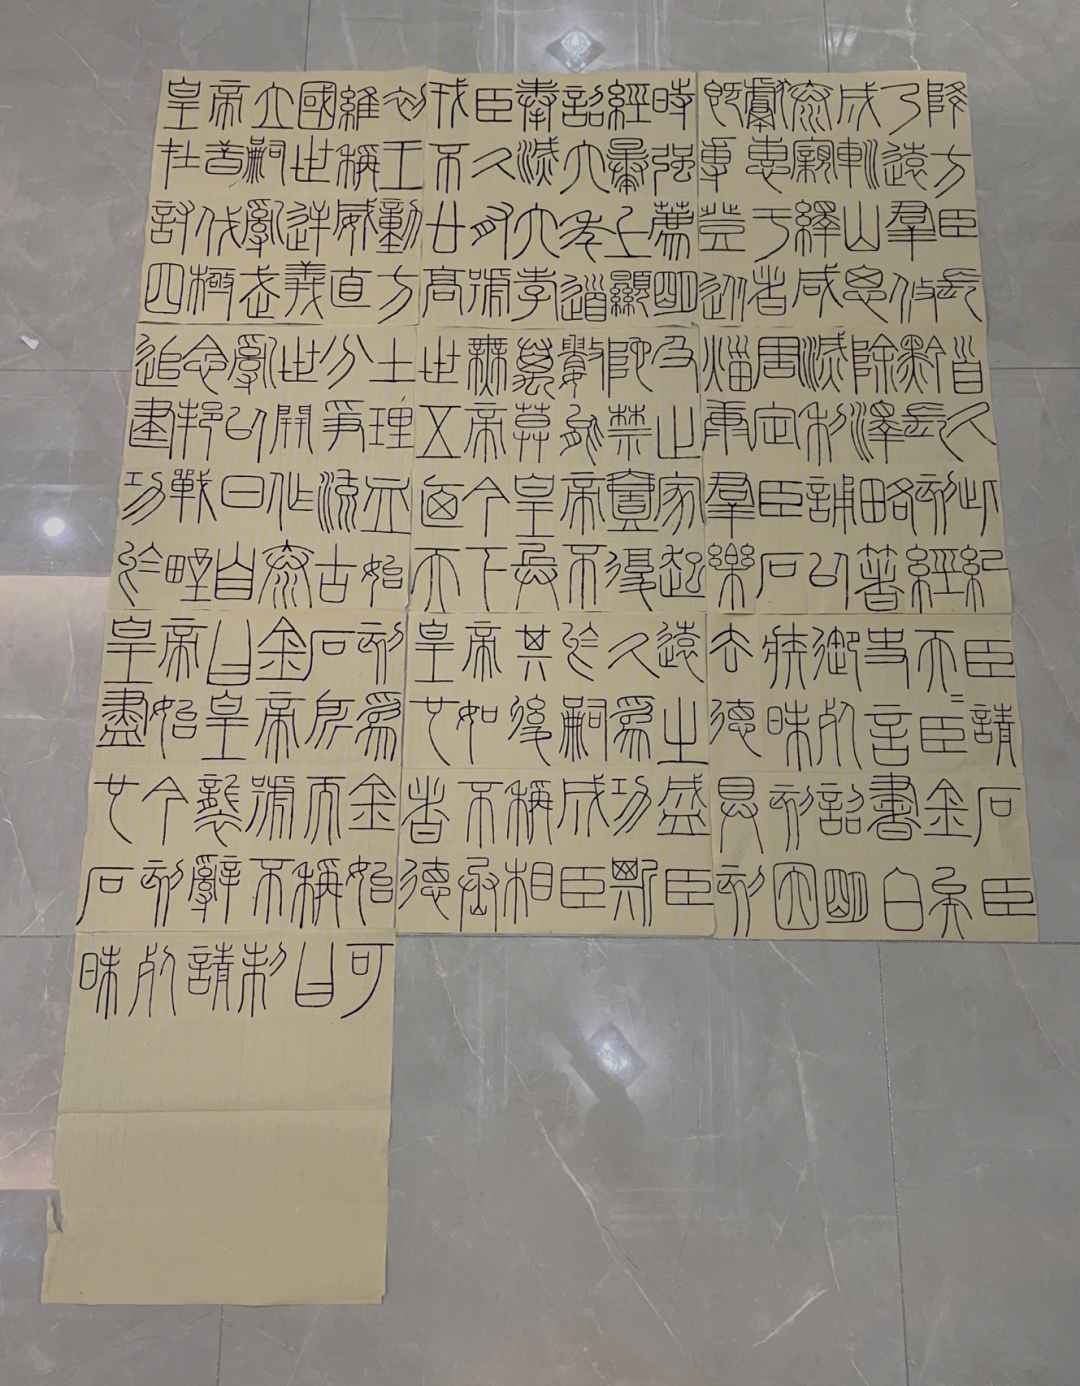 皇帝立國維初
在昔嗣世稱王
討伐亂逆威動
四極武義直方
戎臣奉詔經時
不久滅六暴强
廿有六年上薦
高號孝道顯明
既獻泰成乃降
尃惠親巡遠方
登于繹山羣臣
從者咸思攸長
追念亂世分土
建邦以開爭理
功戰日作流血
於野自泰古始
世無萬數陀及
五帝莫能禁止
廼今皇帝壹家
天下兵不復起
烖害滅除黔首
康定利澤長久
羣臣誦略刻此
樂石以著經紀
皇帝曰金石刻
盡始皇帝所爲
也今襲號而金
石刻辭不稱始
皇帝其於久遠
也如後嗣爲之
者不稱成功盛
德丞相臣斯臣
去疾御史夫=臣
德昧死言臣請
具刻詔書金石
刻因明白矣臣
昧死請制曰可